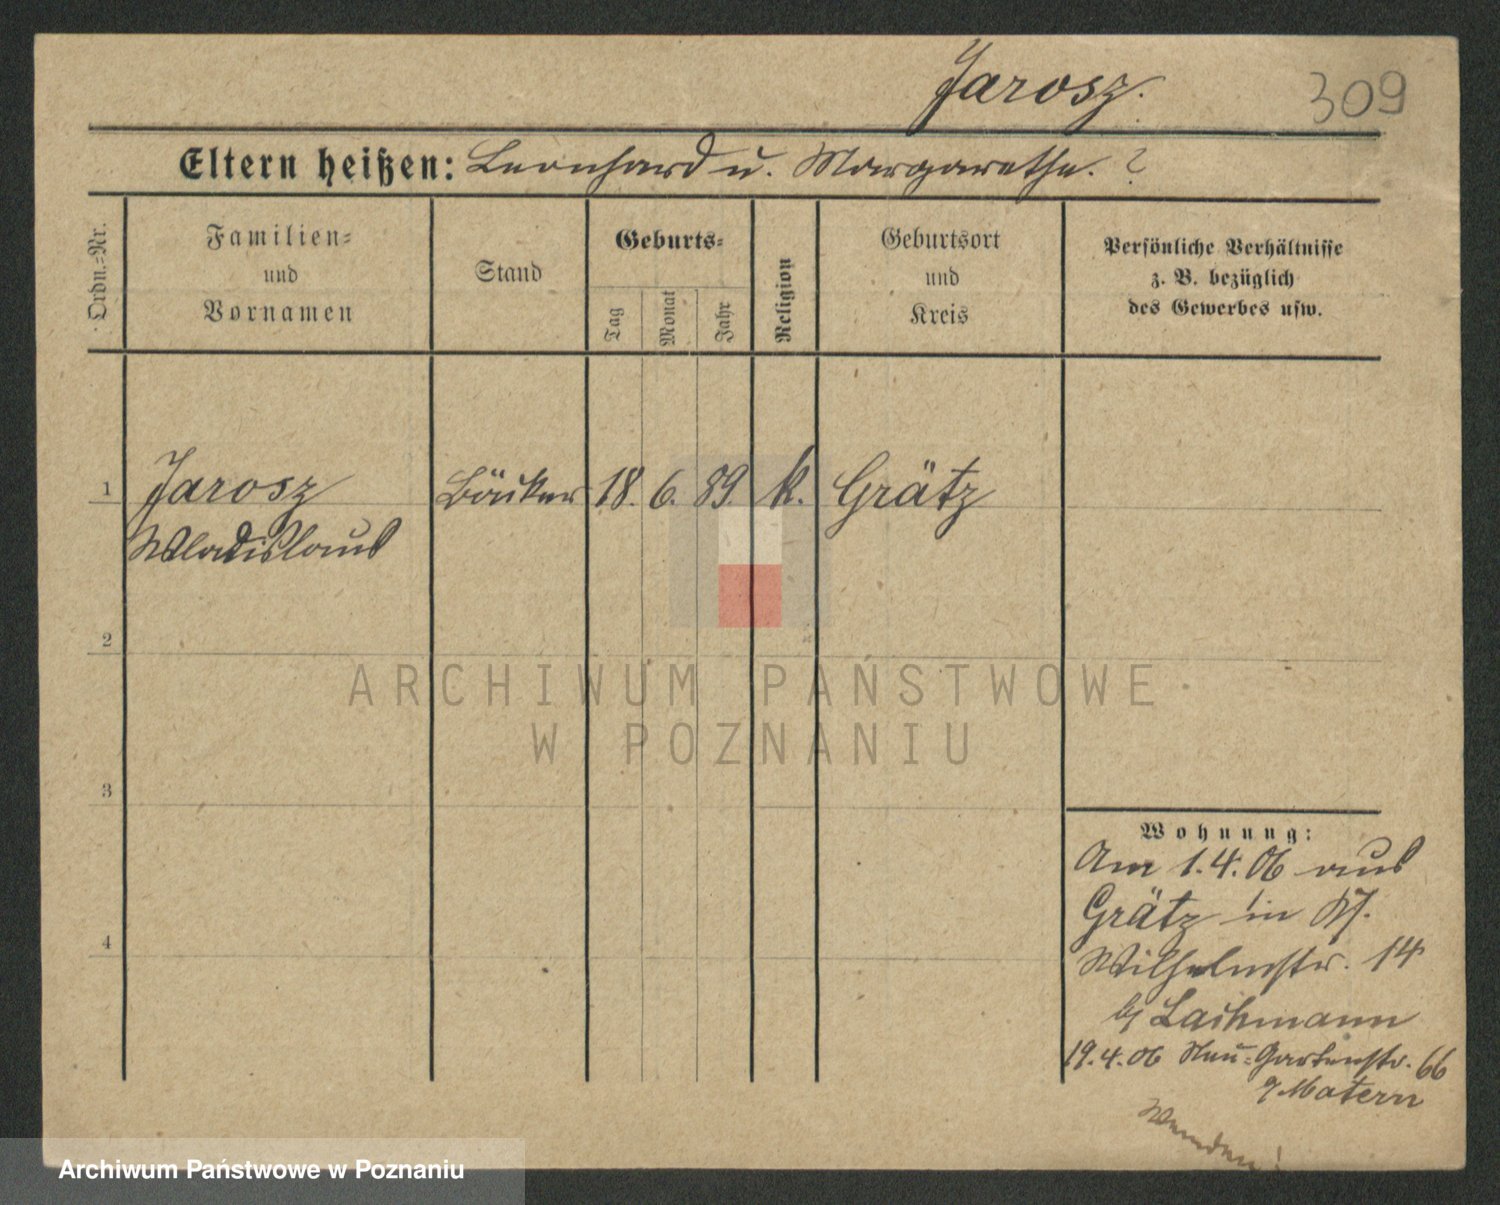 Jarosz.
309
Eltern heißen: Leonhard u. Margarethe. ?
Ordn.=Nr.
Familien=
und
Vornamen
Stand
Geburts=
Tag
Monat
Jahr
Religion
Geburtsort
und
Kreis
Persönliche Verhältnisse
z. B. bezüglich
des Gewerbes usw.
1 Jarosz Bäcker 18. 6. 89. k. Grätz
Wladislaus
2
3
4
Wohnung:
Am 1.4.06 aus
Grätz in
Wilhelmstr. 14
b/ Lachmann
19.4.06 Neu=Gartenstr. 66
Matern
Wenden!
ARCHIWUM PAŃSTWOWE
W POZNANIU
Archiwum Państwowe w Poznaniu